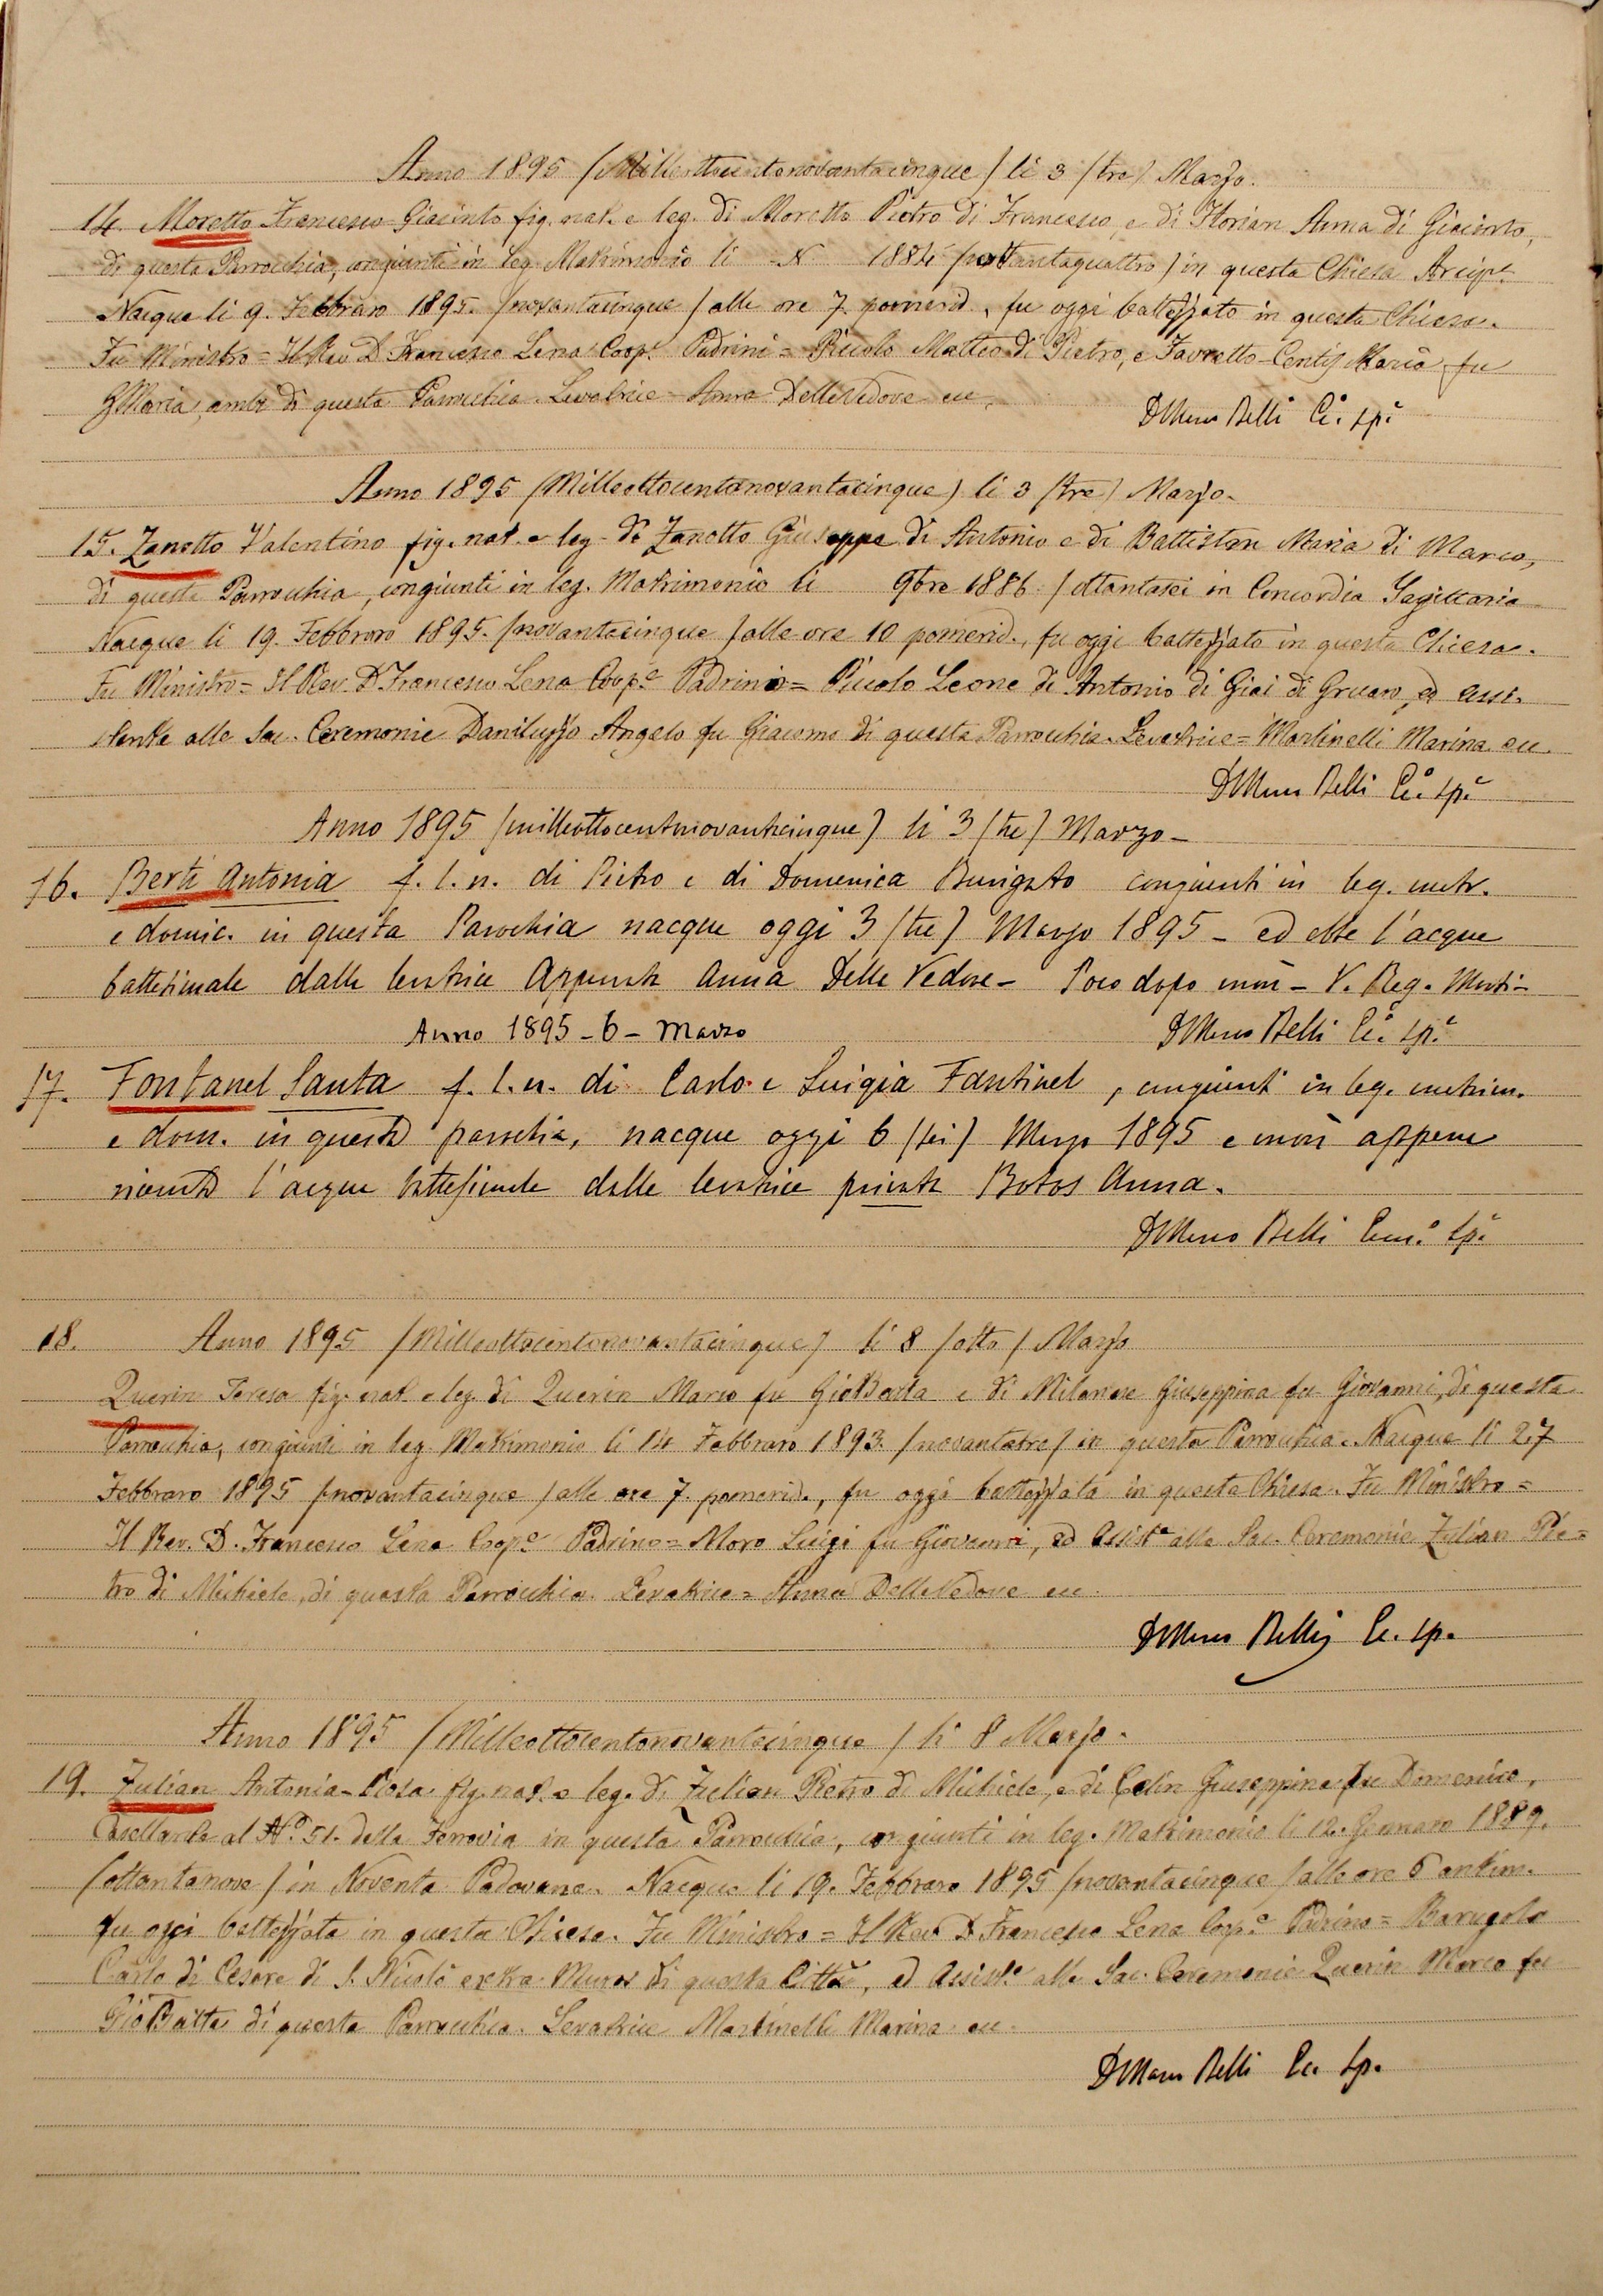 Anno 1895 /Milleottocentonovantacinque/ li 3 /tre/ Marzo.
14. Moretto Francesco Giacinto fig. nat. e leg. di Moretto Pietro di Francesco, e di Florian Anna di Giacinto,
di questa Parrochia, congiunti in leg. Matrimonio li N. 1884 /ottantaquattro/ in questa Chiesa Arcip.e
Nacque li 9. Febbraro 1895. /novantacinque/ alle ore 7. pomerid., fu oggi battezzato in questa Chiesa.
Fu Ministro = Il Rev. D. Francesco Lena Coop.e Padrini = Piccolo Matteo di Pietro, e Favretto-Centis Maria fu
GMaria, ambi di questa Parrochia. Levatrice - Anna Delle Vedove
D Marco Belli Ec.o Sp.e
Anno 1895 /Milleottocentonovantacinque/ li 3 /tre/ Marzo.
15. Zanotto Valentino fig. nat. e leg. di Zanotto Giuseppe di Antonio e di Battiston Maria di Marco,
di questa Parrochia, congiunti in leg. Matrimonio li 9bre 1886. /ottantasei in Concordia Sagittaria
Nacque li 19. Febbraro 1895. /novantacinque/ alle ore 10 pomerid., fu oggi battezzato in questa Chiesa.
Fu Ministro = Il Rev. D. Francesco Lena Coop.e Padrino = Piccolo Leone di Antonio di Giai di Gruaro, ed assi-
stente alle Sac. Ceremonie Daniluzzo Angelo fu Giacomo di questa Parrochia. Levatrice = Martinelli Marina
D Marco Belli Ec.o Sp.e
Anno 1895 /milleottocentonovantacinque/ li 3 /tre/ Marzo -
16. Berti Antonia f. l. n. di Pietro e di Domenica Burigato congiunti in leg. matr.
e domic. in questa Parochia nacque oggi 3 /tre/ Marzo 1895 - ed ebbe l'acqua
battesimale dalla levatrice approvata Anna Delle Vedove - Poco dopo morì - V. Reg. Morti -
Anno 1895 - 6 - Marzo
D Marco Belli Ec.o Sp.e
17. Fontanel Santa f. l. n. di Carlo e Luigia Fantinel, congiunti in leg. matrim.
e dom. in questa parochia, nacque oggi 6 /sei/ Marzo 1895 e morì appena
ricevuta l'acqua battesimale dalla levatrice privata Botos Anna.
D Marco Belli Sp.e
18. Anno 1895 /Milleottocentonovantacinque/ li 8 /otto/ Marzo
Querin Teresa fig. nat. e leg. di Querin Marco fu GioBatta e di Milanese Giuseppina fu Giovanni, di questa
Parrochia, congiunti in leg. Matrimonio li 14 Febbraro 1893. /novantatre/ in questa Parrochia. Nacque li 27
Febbraro 1895 /novantacinque/ alle ore 7. pomerid., fu oggi battezzata in questa Chiesa. Fu Ministro =
Il Rev. D. Francesco Lena Coop.e Padrino = Moro Luigi fu Giovanni, ed Assist.e alle Sac. Ceremonie Zulian Pie=
tro di Michiele, di questa Parrochia. Levatrice = Anna Delle Vedove
D Marco Belli Ec. Sp.
Anno 1895 /Milleottocentonovantacinque/ li 8 Marzo.
19. Zulian Antonia-Rosa fig. nat. e leg. di Zulian Pietro di Michiele, e di Colin Giuseppina fu Domenico,
Casellante al N.o 51. della Ferrovia in questa Parrochia, congiunti in leg. Matrimonio li 12. Gennaro 1889.
/ottantanove/ in Noventa Padovana. Nacque li 19. Febbraro 1895 /novantacinque/ alle ore 6 antim.
fu oggi battezzata in questa Chiesa. Fu Ministro = Il Rev. D. Francesco Lena Coop.e Padrino = Barugolo
Carlo di Cesare di S. Nicolò extra Muros di questa Città, ed Assist.e alle Sac. Ceremonie Querin Marco fu
GioBatta di questa Parrochia. Levatrice Martinelli Marina
D Marco Belli Ec. Sp.